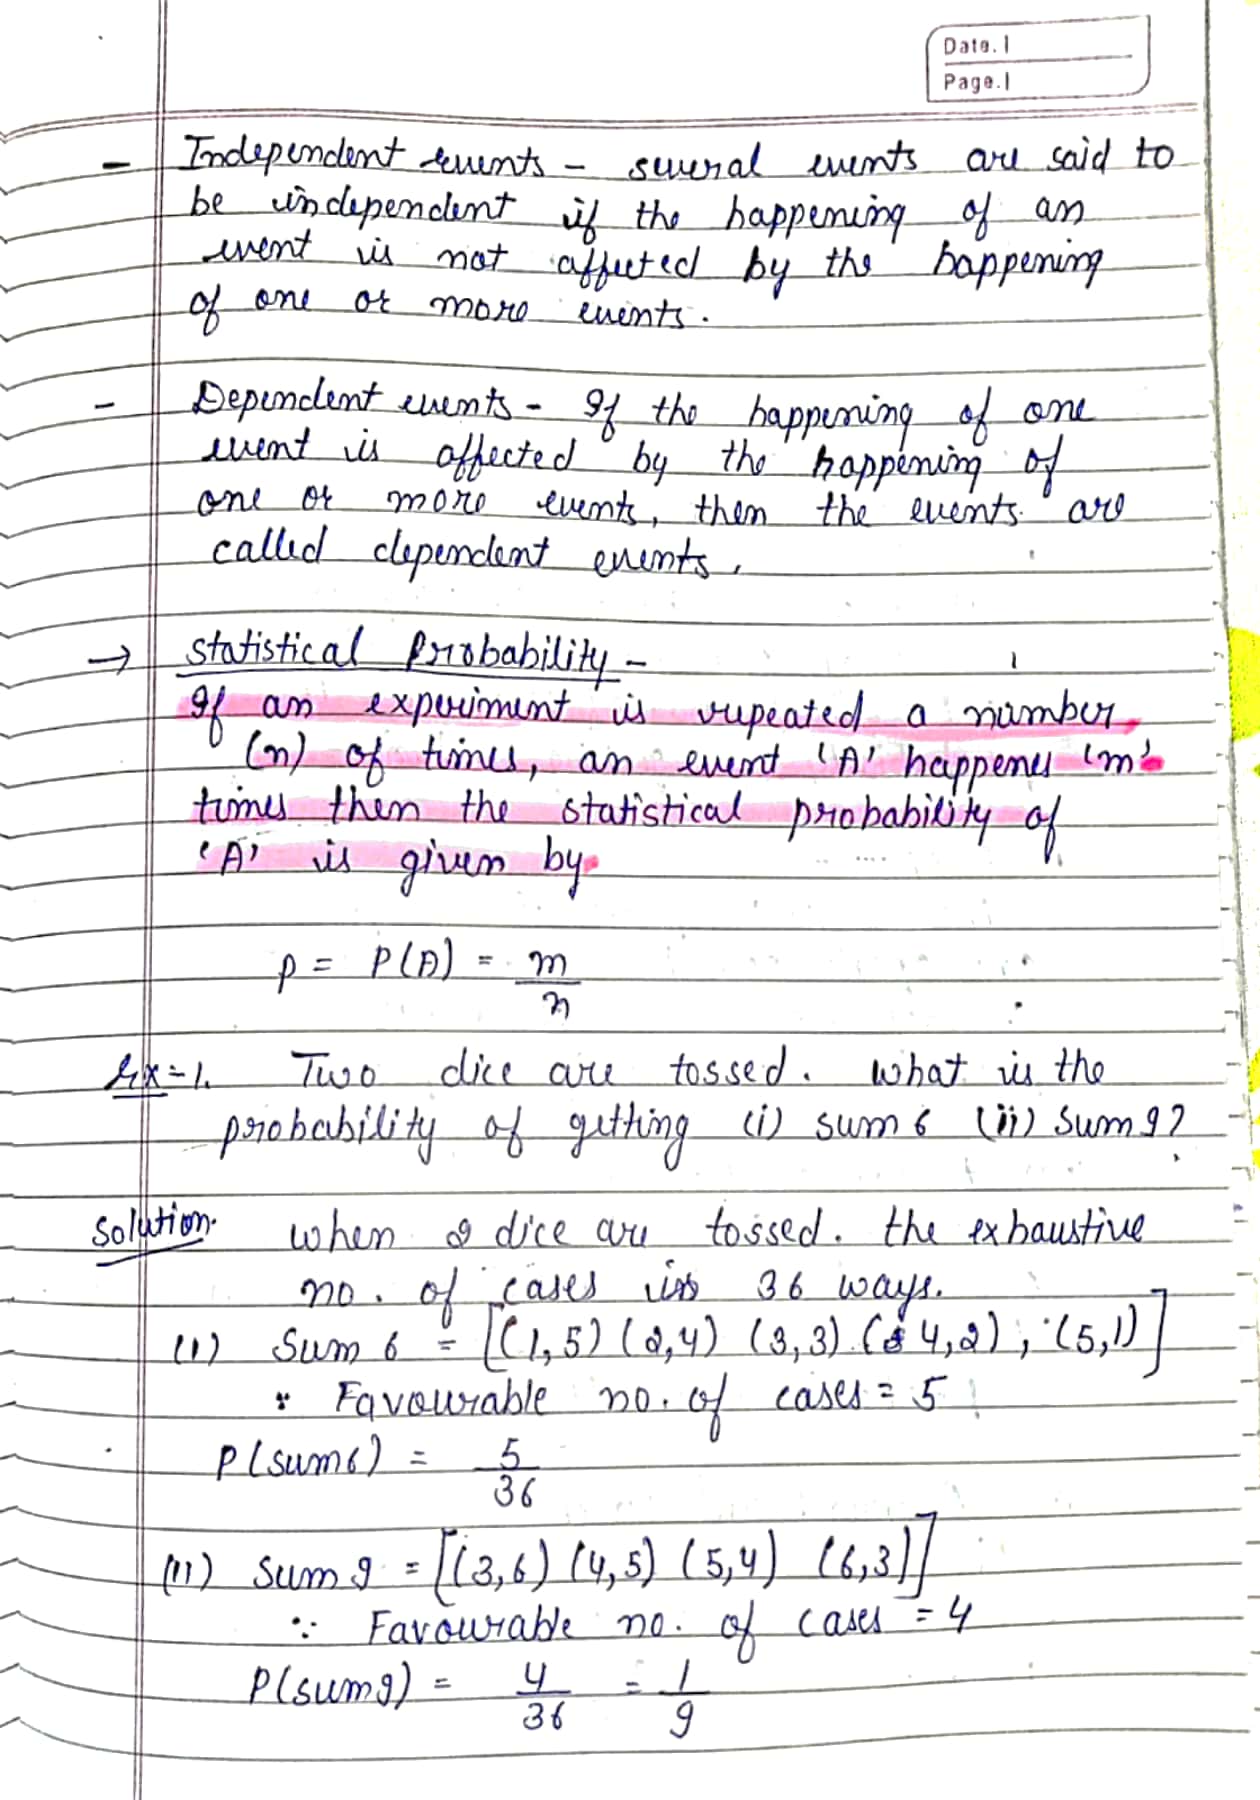 Date.
Page.
- Independent events - several events are said to
be independent if the happening of an
event is not affected by the happening
of one or more events.
- Dependent events - If the happening of one
event is affected by the happening of
one or more events, then the events are
called dependent events.
→ Statistical Probability -
If an experiment is repeated a number
(n) of times, an event 'A' happenes 'm'
times then the statistical probability of
'A' is given by
p = P(A) = m/n
Ex-1. Two dice are tossed. What is the
probability of getting (i) sum 6 (ii) Sum 9?
Solution. when 2 dice are tossed. the exhaustive
no. of cases is 36 ways.
(i) Sum 6 = [(1,5) (2,4) (3,3) (4,2), (5,1)]
∵ Favourable no. of cases = 5
P(sum 6) = 5/36
(ii) Sum 9 = [(3,6) (4,5) (5,4) (6,3)]
∵ Favourable no. of cases = 4
P(sum 9) = 4/36 = 1/9